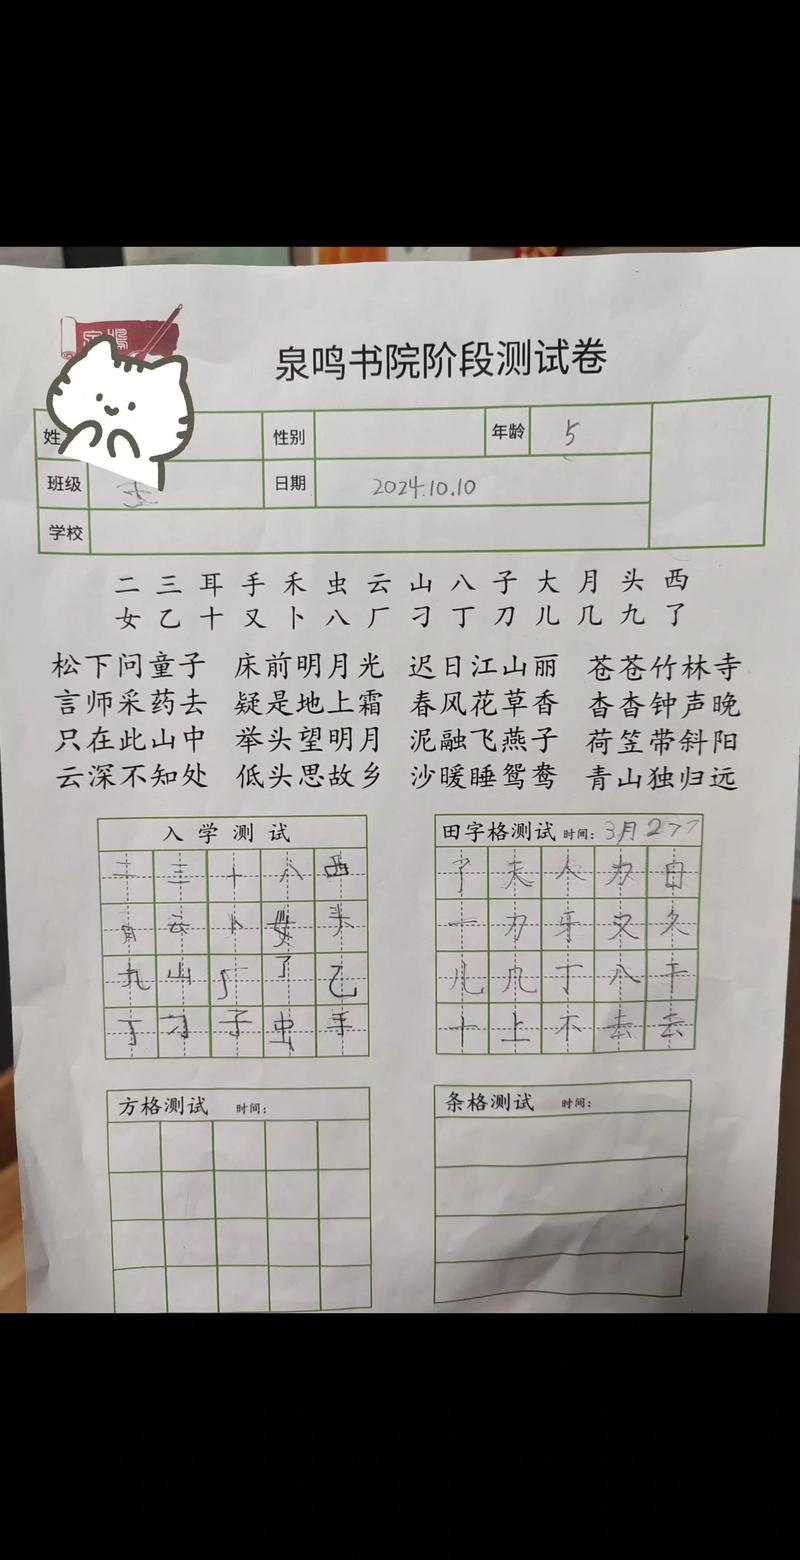 泉鸣书院阶段测试卷
姓 性别 年龄 5
班级 日期 2024.10.10
学校
二 三 耳 手 禾 虫 云 山 八 子 大 月 头 西
女 乙 十 又 卜 八 厂 刁 丁 刀 儿 几 九 了
松下问童子 床前明月光 迟日江山丽 苍苍竹林寺
言师采药去 疑是地上霜 春风花草香 杳杳钟声晚
只在此山中 举头望明月 泥融飞燕子 荷笠带斜阳
云深不知处 低头思故乡 沙暖睡鸳鸯 青山独归远
入学测试
二 三 十 八 西
云 卜 女 头
九 山 厂 了 乙
丁 刁 子 虫 手
田字格测试 时间: 3月2
了 夫 人 力 白
一 刀 牙 又 久
儿 几 丁 八 干
十 上 不 去 去
方格测试 时间:
条格测试 时间: